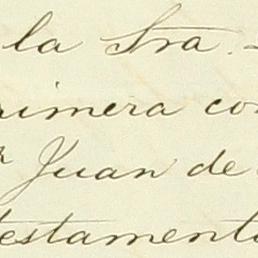 la Sra.
rimera co
Juan de
testamento